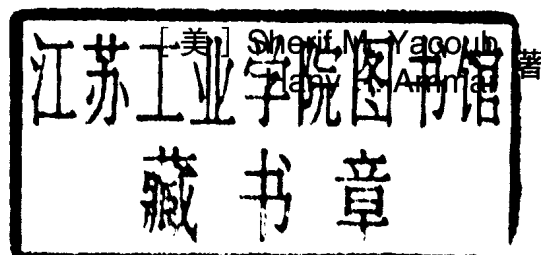 [美] Sherif M. Yacoub
Hany Ammar
著
江苏工业学院图书馆
藏书章